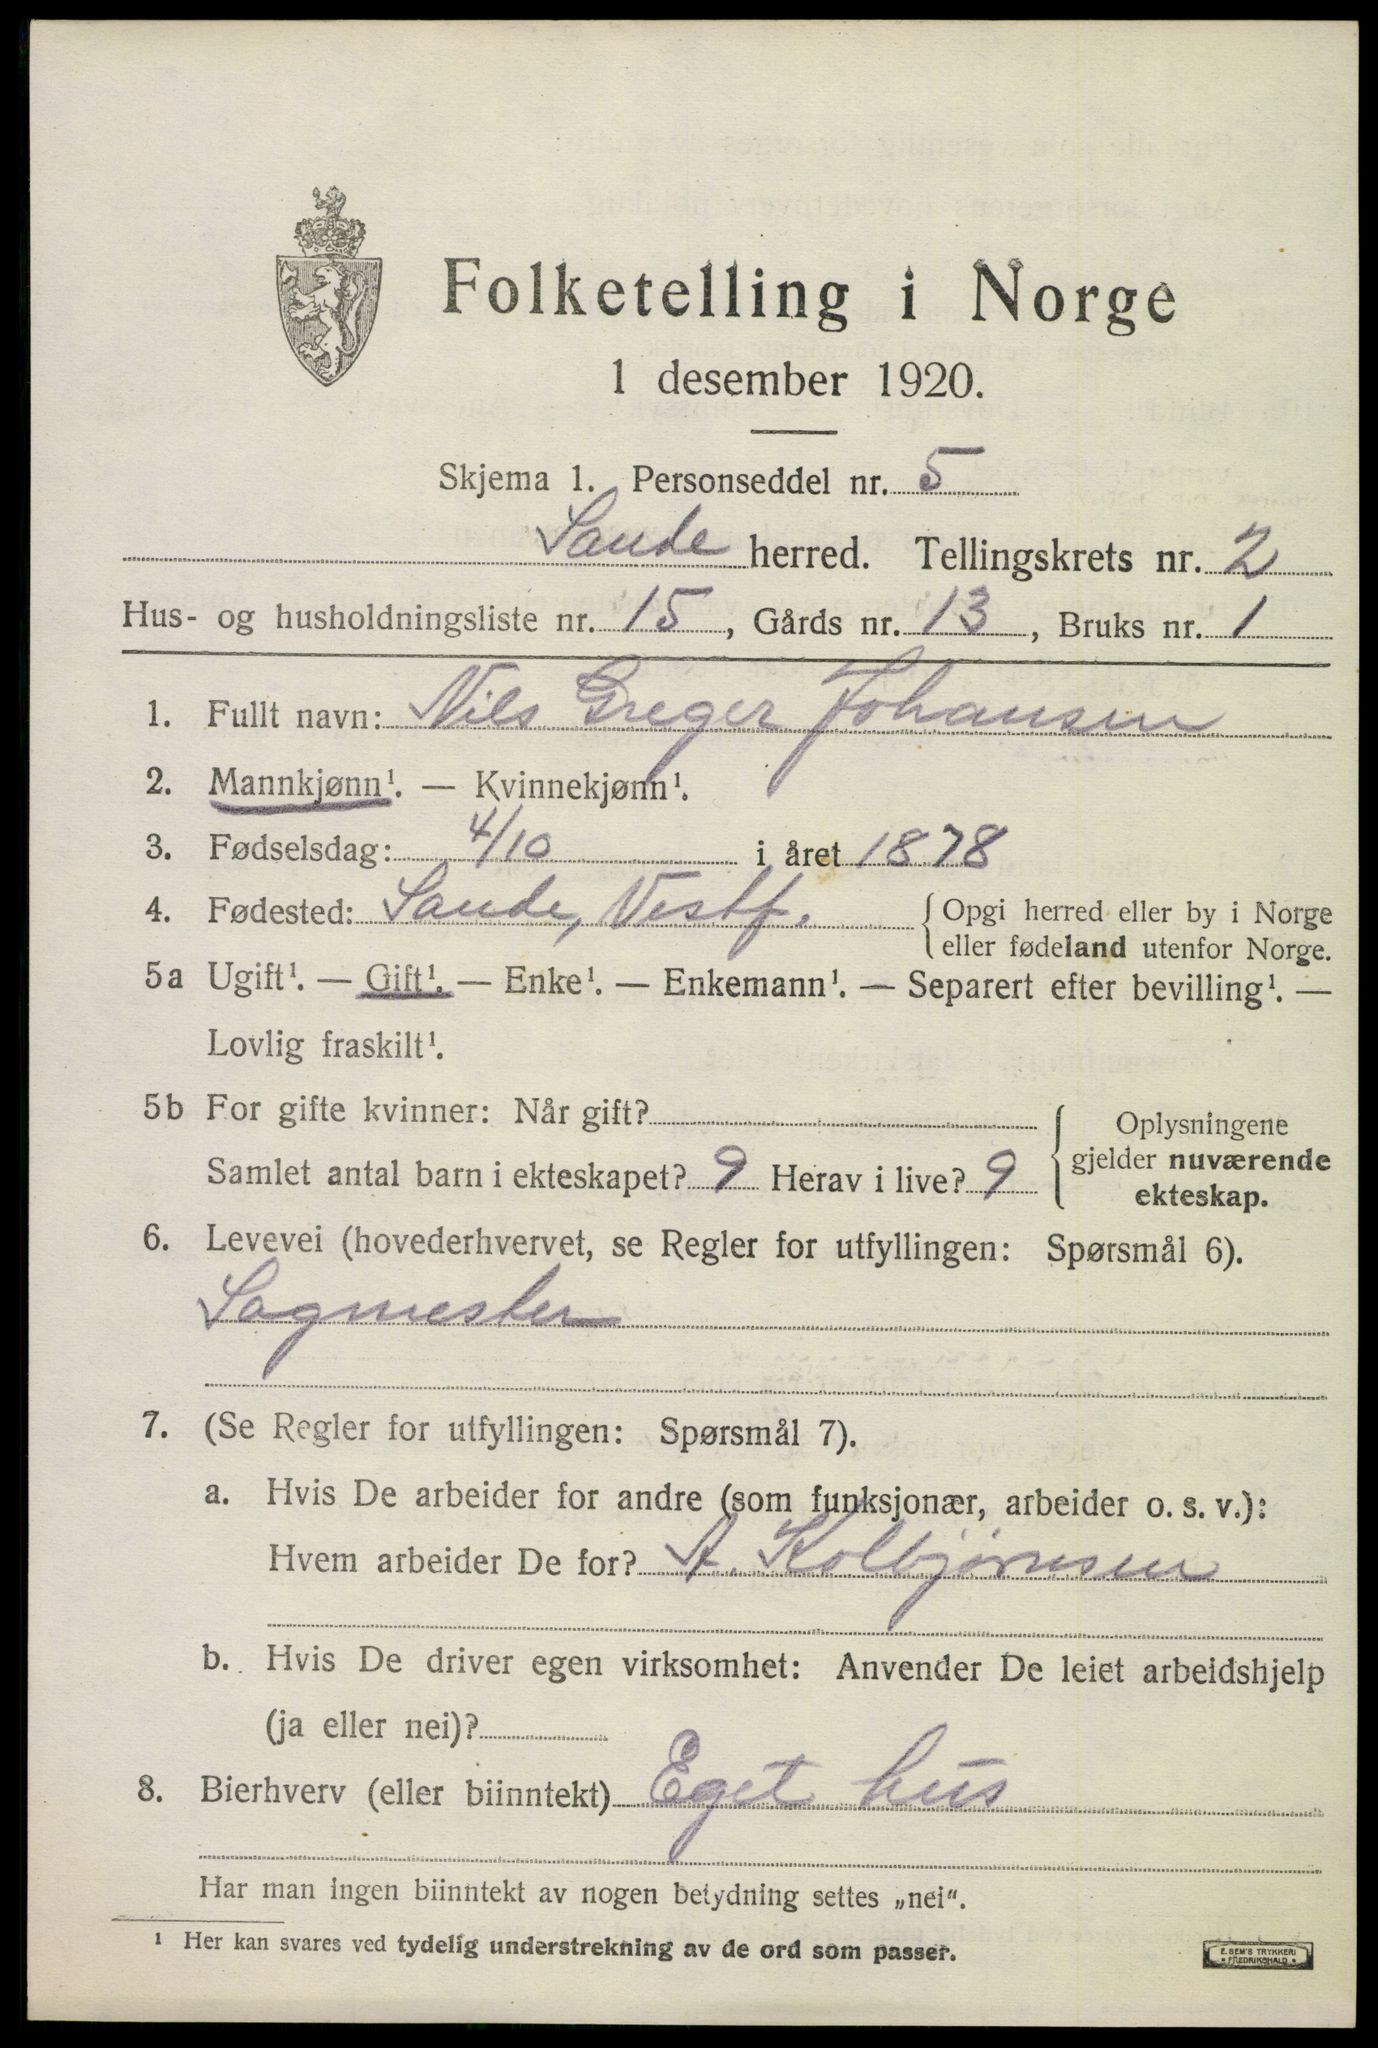 Folketelling i Norge
1 desember 1920.
Skjema 1. Personseddel nr. 5
Sande herred. Tellingskrets nr. 2
Hus- og husholdningsliste nr. 15, Gårds nr. 13, Bruks nr. 1
1. Fullt navn: Nils Greger Johansen
2. Mannkjønn¹. — Kvinnekjønn¹.
3. Fødselsdag: 4/10 i året 1878
4. Fødested: Sande, Vestf. { Opgi herred eller by i Norge
eller fødeland utenfor Norge.
5a Ugift¹. — Gift¹. — Enke¹. — Enkemann¹. — Separert efter bevilling¹. —
Lovlig fraskilt¹.
5b For gifte kvinner: Når gift?
Samlet antal barn i ekteskapet? 9 Herav i live? 9
Oplysningene
gjelder nuværende
ekteskap.
6. Levevei (hovederhvervet, se Regler for utfyllingen: Spørsmål 6).
Sagmester
7. (Se Regler for utfyllingen: Spørsmål 7).
a. Hvis De arbeider for andre (som funksjonær, arbeider o. s. v.):
Hvem arbeider De for? A. Kolbjørnsen
b. Hvis De driver egen virksomhet: Anvender De leiet arbeidshjelp
(ja eller nei)?
8. Bierhverv (eller biinntekt) Eget hus
Har man ingen biinntekt av nogen betydning settes „nei".
¹ Her kan svares ved tydelig understrekning av de ord som passer.
E. SEM'S TRYKKERI
• FREDRIKSHALD •